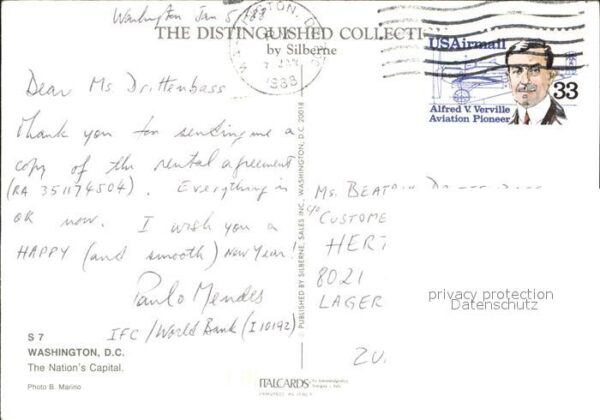 Washington Jan 5, '88
THE DISTINGUISHED COLLECTION
by Silberne
WASHINGTON, D.C.
1988
USAirmail
33
Alfred V. Verville
Aviation Pioneer
Dear Ms. Drittenbass
Thank you for sending me a
copy of the rental agreement
(RA 351174504). Everything is
OK now. I wish you a
HAPPY (and smooth) New Year!
Paulo Mendes
IFC/World Bank (I 10192)
S 7
WASHINGTON, D.C.
The Nation's Capital.
Photo B. Marino
© PUBLISHED BY SILBERNE, SALES INC., WASHINGTON, D.C. 20018
ITALCARDS
PRINTED IN ITALY
Ms. BEATRIX
c/o CUSTOME
HERT
8021
LAGER
ZU
privacy protection
Datenschutz